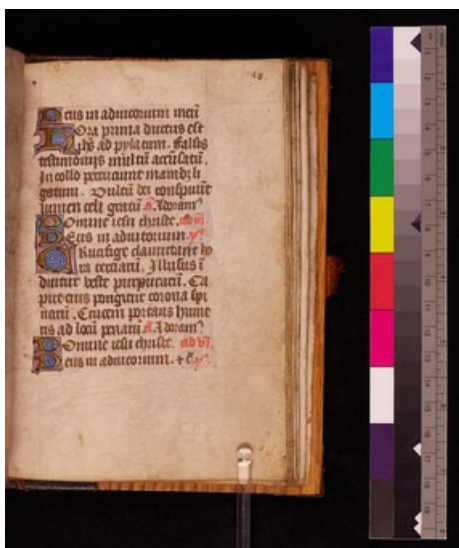 18.
Deus in adiutorium meū
Hora prima ductus est
ihs̄ ad pylatum. Falsis
testimoniis multū accusatū.
In collo percuciunt manibꝫ li
gatum. Vultū dei conspuūt
lumen celi gratū a. Adoram9
Domine iesu christe. ad iii
Deus in adiutorium. ys
Crucifige clamitant ho
ra terciarū. Illusus ī
duitur veste purpurarū. Ca
put eius pungitur corona spi
narū. Crucem portauit hume
ris ad locū penarū a. Adoram9
Domine iesu christe. ad vī.
Deus in adiutorium. + c̄ ys